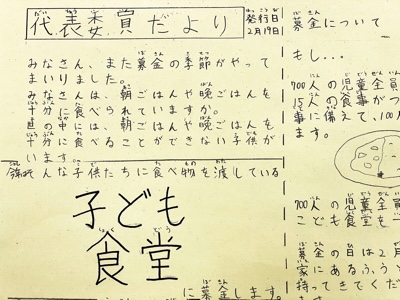 代表委員だより
発行日
2月19日
みなさん、また募金の季節がやって
まいりました。
みなさんは、朝ごはんや晩ごはんを
十分に食べられていますか。
世の中には、朝ごはんや晩ごはんを
十分に食べることができない子供が
います。
そんな子供たちに食べ物を渡している
子ども
食堂
に募金します。
募金について
もし...
700人の児童全員
15人の食事がつ
事に備えて、100人
ます。
700人の児童全員
こども食堂を一
募金の日は2月
家にあるふうと
持ってきてくだ